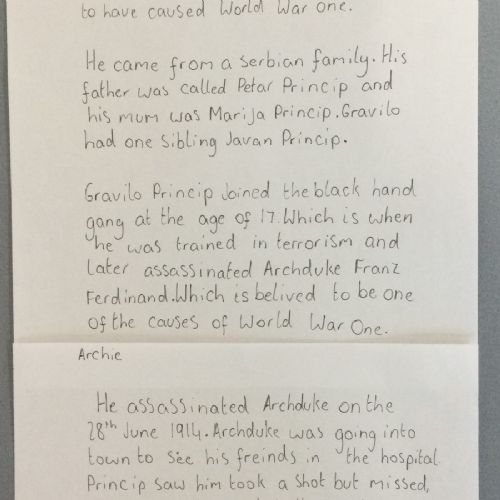 to have caused World War one.
He came from a Serbian family. His
father was called Petar Princip and
his mum was Marija Princip. Gravilo
had one sibling Javan Princip.
Gravilo Princip Joined the black hand
gang at the age of 17. Which is when
he was trained in terrorism and
later assassinated Archduke Franz
Ferdinand. Which is belived to be one
of the causes of World War One.
Archie
He assassinated Archduke on the
28th June 1914. Archduke was going into
town to see his freinds in the hospital.
Princip saw him took a shot but missed,